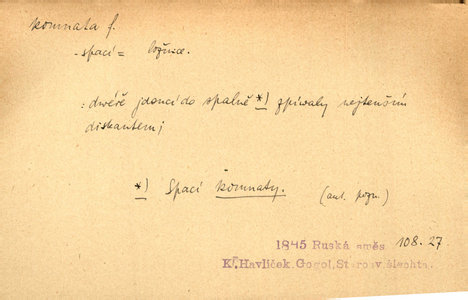 komnata f.
- spací = ložnice.
: dwéřě jdoucí do spalně *) zpívaly nejtenším
diskantem;
*) Spací komnaty. (aut. pozn.)
1845 Ruská směs 108.27.
K. Havlíček. Gogol, Starosv. šlechta.